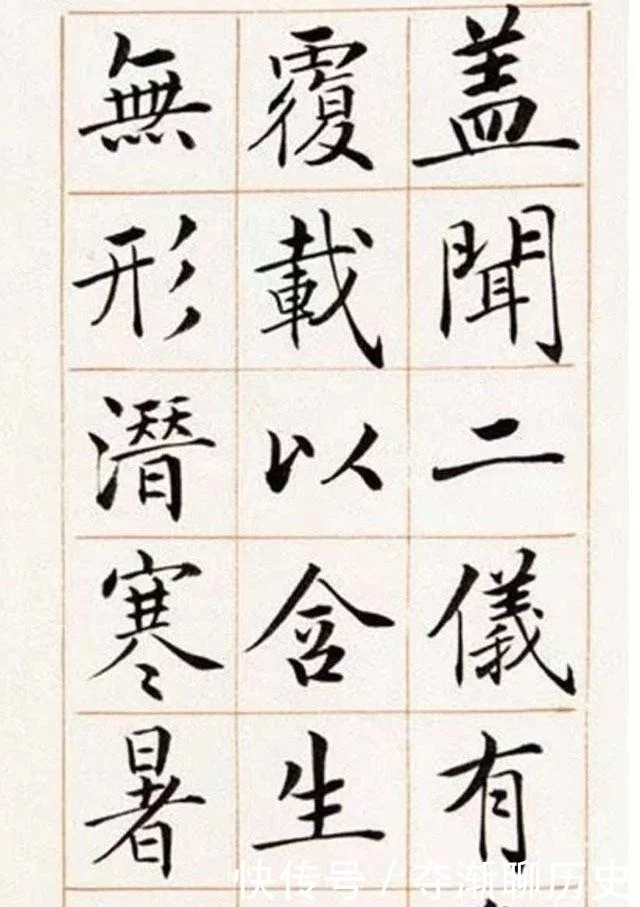 蓋聞二儀有
覆載以含生
無形潛寒暑
快传号 / 夺渐聊历史